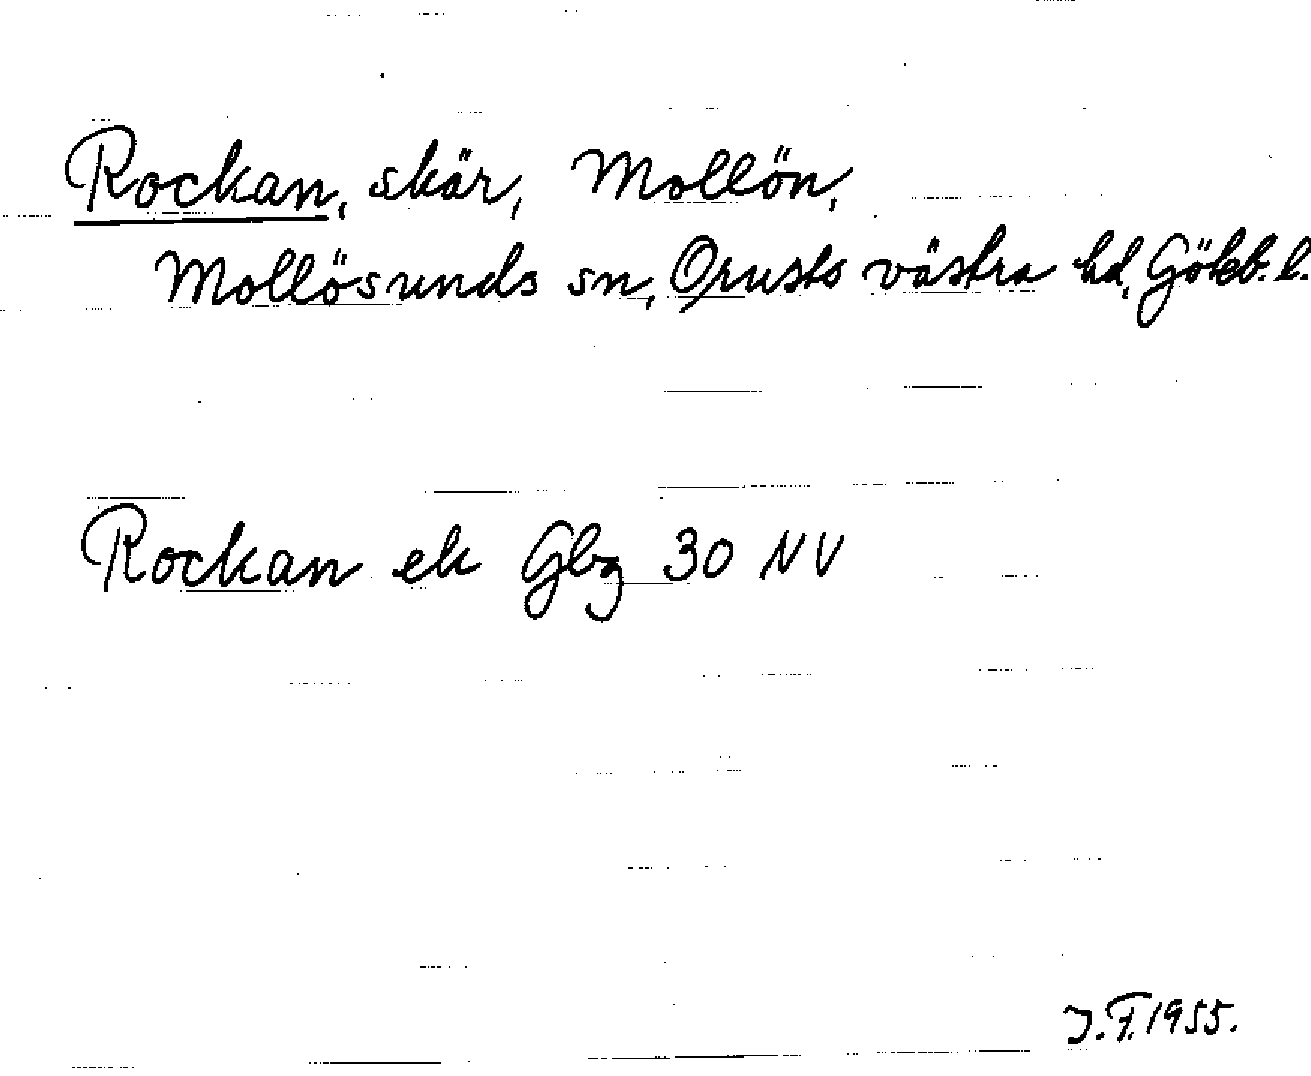 Rockan, skär, Mollön,
Mollösunds sn, Orusts västra hd, Göteb. l.
Rockan ek Gbg 30 NV
J.F. 1955.